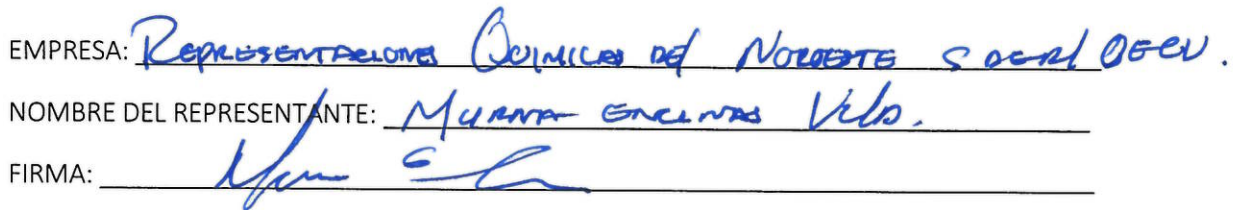 EMPRESA: Representaciones Quimicas del Noroeste S de RL DE CV.
NOMBRE DEL REPRESENTANTE: Encinas
FIRMA: